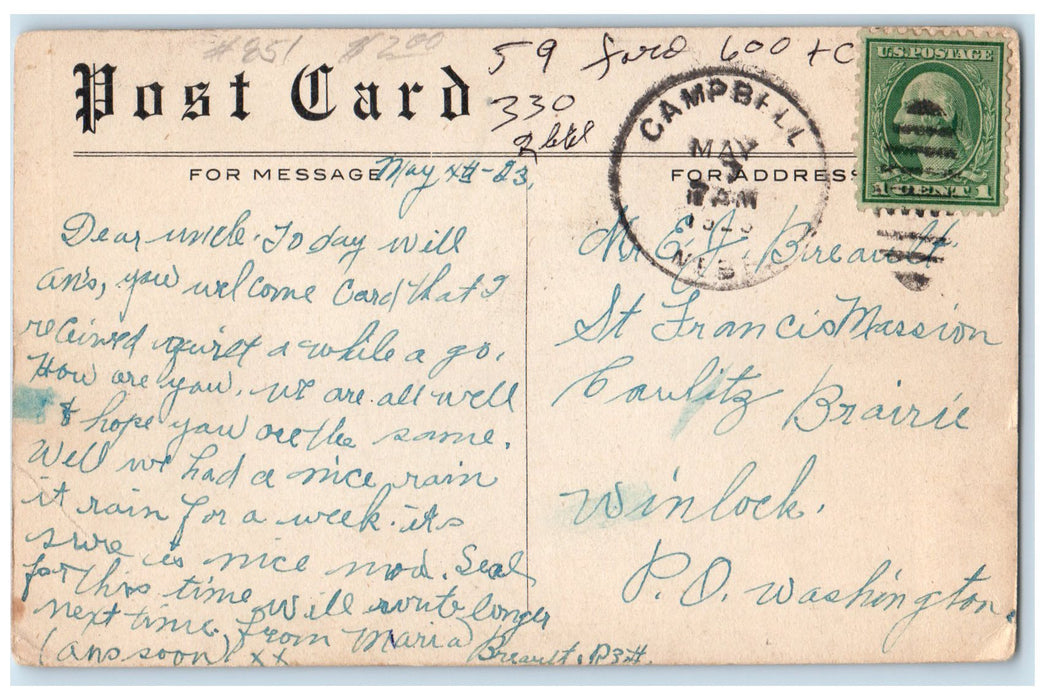 #851 $2.00
59 ford 600 + C
330
Post Card
FOR MESSAGE
May
-23.
FOR ADDRESS
CAMPBELL
MAY
7 AM
1923
NEBR
U.S. POSTAGE
1 CENT 1
Dear uncle. To day will
ans, you welcome Card that I
received quiet a while a go.
How are you. we are all well
& hope you are the same.
Well we had a nice rain
it rain for a week. its
sure is nice
Seal
for this time will write longer
next time. from Maria
Breault. R3
(ans soon) xx
Mr E.J. Breault
St Francis Massion
Caulitz Brairie
Winlock.
P.O. Washington.